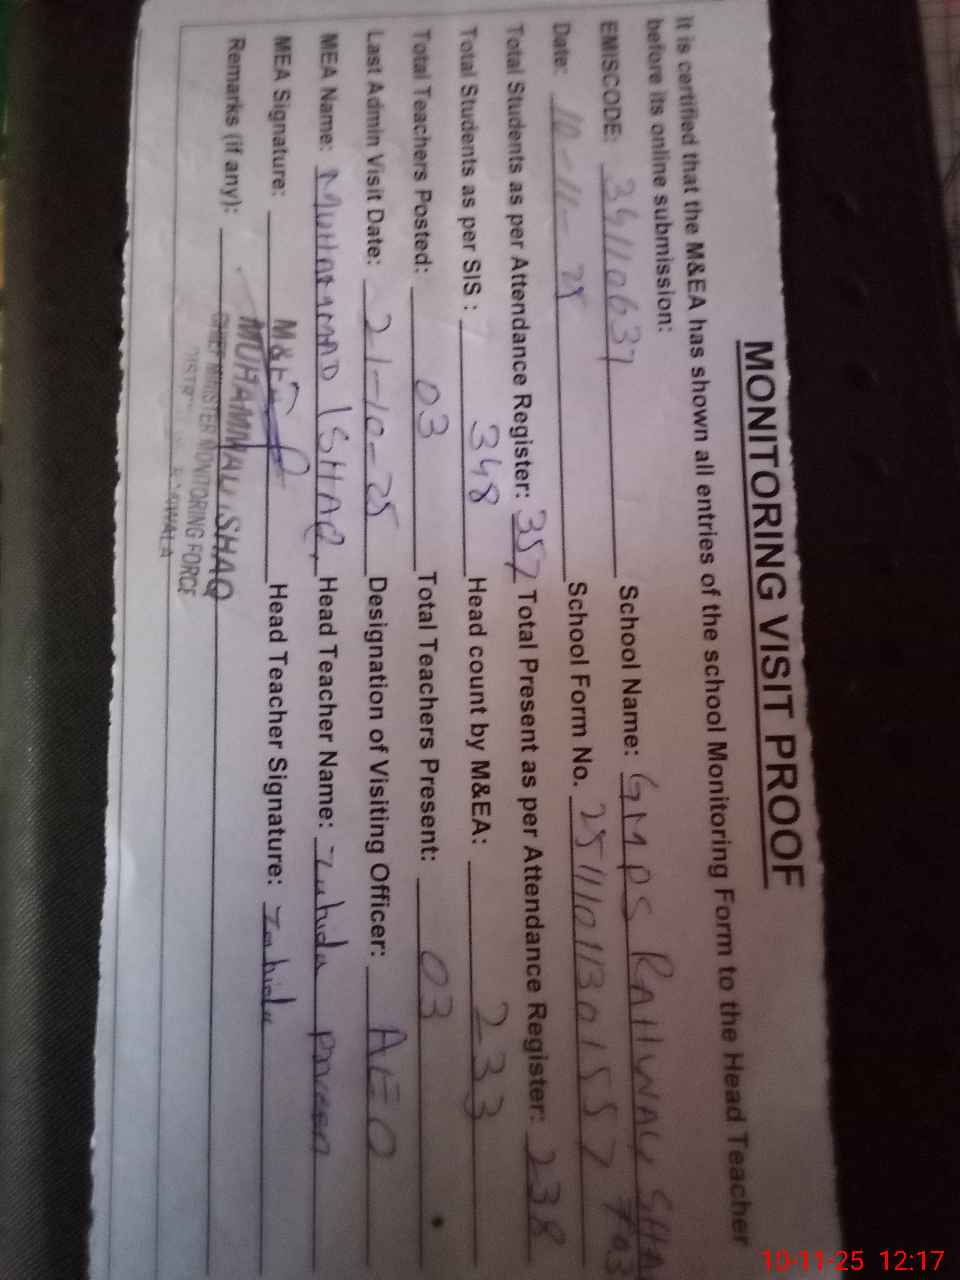 MONITORING VISIT PROOF
It is certified that the M&EA has shown all entries of the school Monitoring Form to the Head Teacher
before its online submission:
EMISCODE: 34110637 School Name: GMPS RAILWAY SHA
Date: 10-11-25 School Form No. 25111011301557703
Total Students as per Attendance Register: 357 Total Present as per Attendance Register: 238
Total Students as per SIS : 348 Head count by M&EA: 233
Total Teachers Posted: 03 Total Teachers Present: 03
Last Admin Visit Date: 21-10-25 Designation of Visiting Officer: AEO
MEA Name: MUHAMMAD ISHAQ Head Teacher Name: Zahida Parveen
MEA Signature: Head Teacher Signature: Zahida
Remarks (if any):
MUHAMMAD ISHAQ
CHIEF MINISTER MONITORING FORCE
10-11-25 12:17